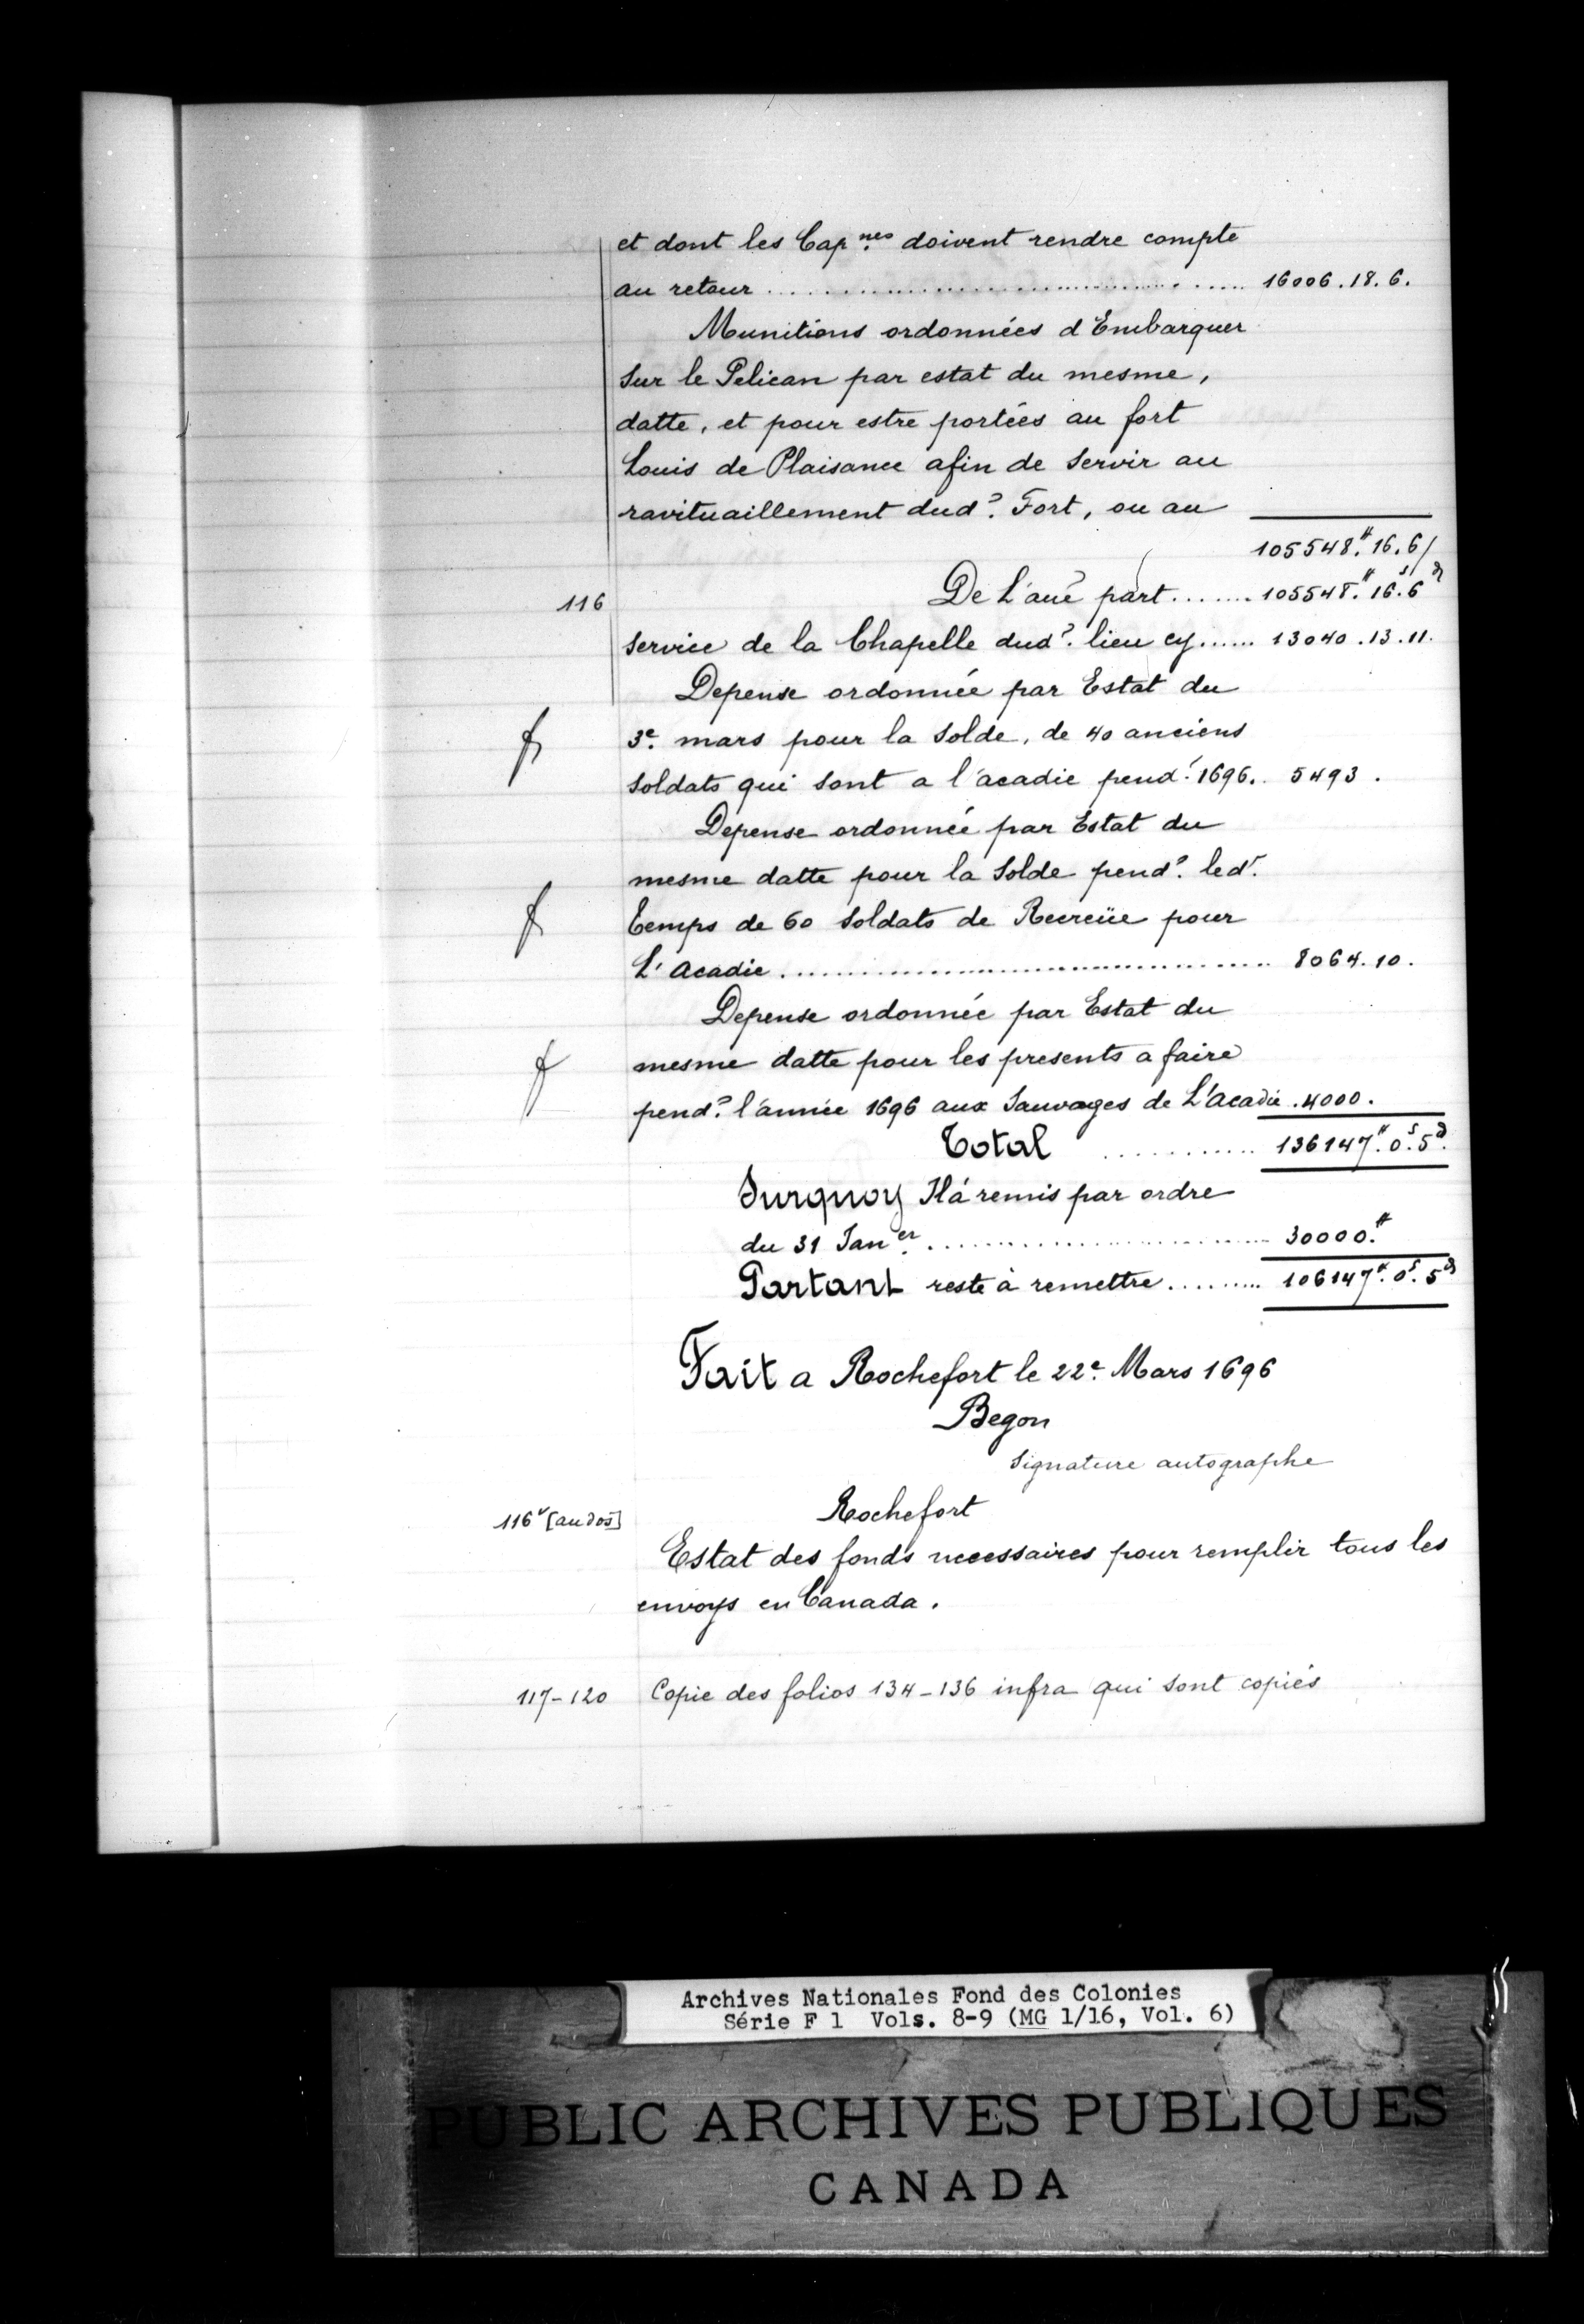 et dont les Cap.nes doivent rendre compte
au retour .......... 16006.18.6.
Munitions ordonnées d'Embarquer
sur le Pelican par estat du mesme,
datte, et pour estre portées au fort
Louis de Plaisance afin de servir au
ravituaillement dud.t Fort, ou au
105548.# 16.6/
116 De L'aue part ....... 105548.# 16.s 6d
service de la Chapelle dud.t lieu cy ...... 13040.13.11.
Depense ordonnée par Estat du
3e. mars pour la solde, de 40 anciens
soldats qui sont a l'acadie pend.t 1696. . 5493.
Depense ordonnée par Estat du
mesme datte pour la solde pend.t led.t
temps de 60 soldats de Recreüe pour
L'Acadie .......... 8064.10.
Depense ordonnée par Estat du
mesme datte pour les presents a faire
pend.t l'année 1696 aux Sauvages de L'Acadie . 4000.
Total ............ 136147.# 0.s 5d.
Surquoy Il a remis par ordre
du 31 Jan.er .......... 30000.#
Partant reste à remettre ......... 106147.# 0s. 5d
Fait a Rochefort le 22e. Mars 1696
Begon
Signature autographe
116v [au dos] Rochefort
Estat des fonds necessaires pour remplir tous les
envoys en Canada.
117-120 Copie des folios 134-136 infra qui sont copiés
Archives Nationales Fond des Colonies
Série F 1 Vols. 8-9 (MG 1/16, Vol. 6)
PUBLIC ARCHIVES PUBLIQUES
CANADA